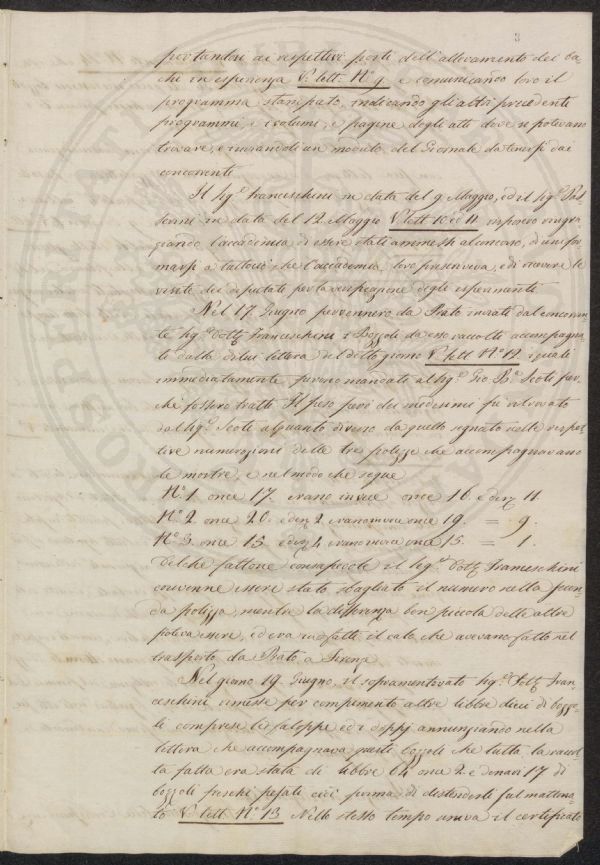 3
portandosi ai respettivi posti dell'allevamento dei ba-
chi in esperienza V. lett. N.° 9. e comunicando loro il
programma stampato, indicando gli altri precedenti
programmi, e i volumi, e pagine degli atti dove si potevano
trovare, e inviandoli un modulo del Giornale da tenersi dai
concorrenti
Il Sig.e Franceschini in data del 9 Maggio, ed il Sig.e
in data del 12 Maggio V. lett. 10 ed 11 risposero ringra-
ziando l'accademia, di essere stati ammessi al concorso, di unifor-
marsi a tuttociò che l'accademia loro prescriveva, e di ricevere le
visite dei deputati per la verificazione degli esperimenti
Nel 17. Giugno pervennero da Prato inviati dal concorren-
te Sig.e Dott. Franceschini i Bozzoli da esso raccolti accompagna-
ti dalla di lui lettera del detto giorno V. lett. N.° 12. i quali
immediatamente furono mandati al Sig.e Gio. B.a Scoti per-
chè fossero tratti. Il peso però dei medesimi fu ritrovato
dal Sig.e Scoti alquanto diverso da quello segnato nelle respet-
tive numerazioni delle tre polizze che accompagnavano
le mostre, e nel modo che segue
N.° 1. once 17. erano invece once 16. e den. 11.
N.° 2. once 20. e den. 2 erano invece once 19. = 9.
N.° 3. once 15. e den. 4 erano invece once 15. = 1.
Del che fattone consapevole il Sig.e Dott. Franceschini
convenne essere stato sbagliato il numero nella secon-
da polizza, mentre la differenza ben piccola delle altre
poteva essere, ed era infatti il calo che avevano fatto nel
trasporto da Prato a Firenze
Nel giorno 19. Giugno, il sopramentovato Sig.e Dott. Fran-
ceschini rimesse per compimento altre libbre dieci di bozzo-
li comprese le faloppe ed i doppj annunziando nella
lettera che accompagnava questi bozzoli che tutta la raccol-
ta fatta era stata di libbre 64 once 2. e denari 17 di
bozzoli freschi pesati cioè prima di distenderli sul mattona-
to V. lett. N.° 13. Nello stesso tempo univa il certificato